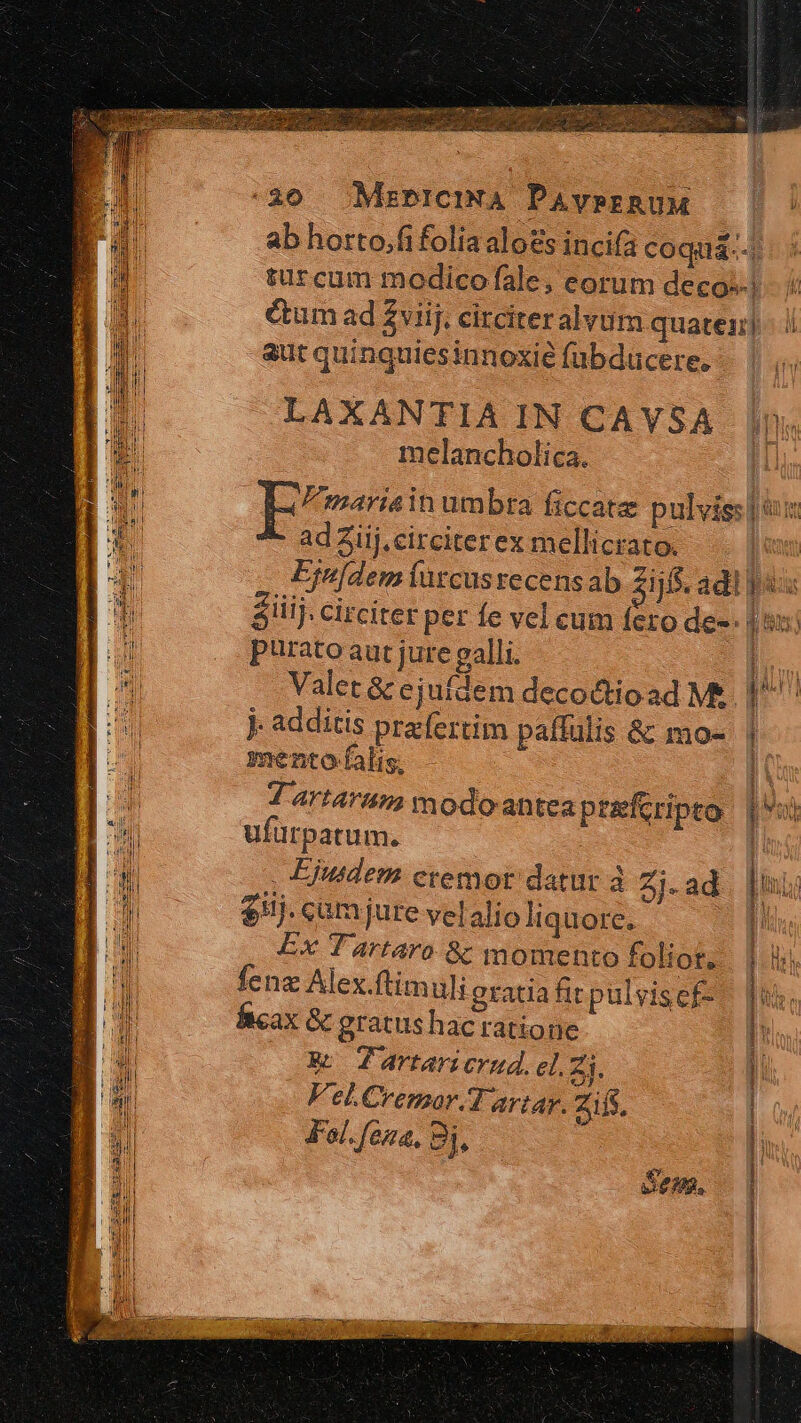 20 MEDICINA PAVPERUM
ab horto, ſi folia aloës inciſa coquã-
tur cum modico ſale, eorum deco-
ctum ad ℥viij. circiter alvum quater
aut quinquies innoxiè ſubducere.
LAXANTIA IN CAVSA
melancholica.
FVmariæ in umbra ſiccatæ pulvis
ad ʒiij. circiter ex mellicrato.
Ejuſdem ſuccus recens ab ℥ijß. ad
℥iiij. circiter per ſe vel cum ſero de-
purato aut jure galli.
Valet & ejuſdem decoctio ad M.
j. additis præſertim paſſulis & mo-
mento ſalis.
Tartarum modo antea præſcripto
uſurpatum.
Ejusdem cremor datur à ʒj. ad
ʒiij. cum jure vel alio liquore.
Ex Tartaro & momento folior.
ſenæ Alex. ſtimuli gratia fit pulvis ef-
ficax & gratus hac ratione
℞ Tartari crud. el. ʒj.
Vel. Cremor. Tartar. ʒiß.
Fol. ſena, ℈j,
Sem.